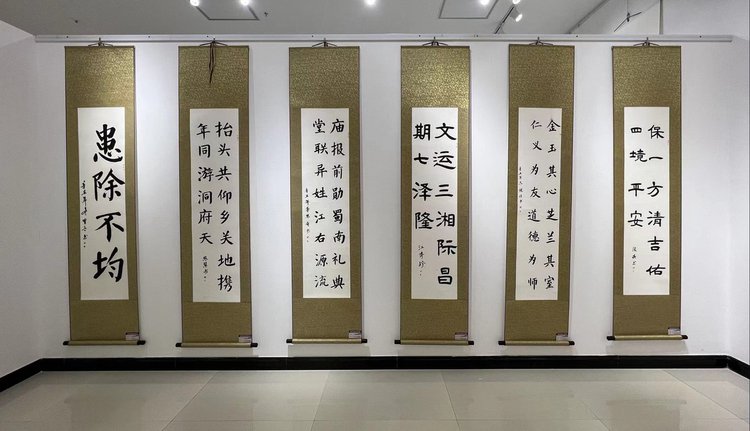 保一方清吉佑
四境平安
金玉其心芝兰其室
仁义为友道德为师
文运三湘际昌
期七泽隆
庙报前勋蜀南礼典
堂联异姓江右源流
抬头共仰乡关地携
年同游洞府天
患除不均